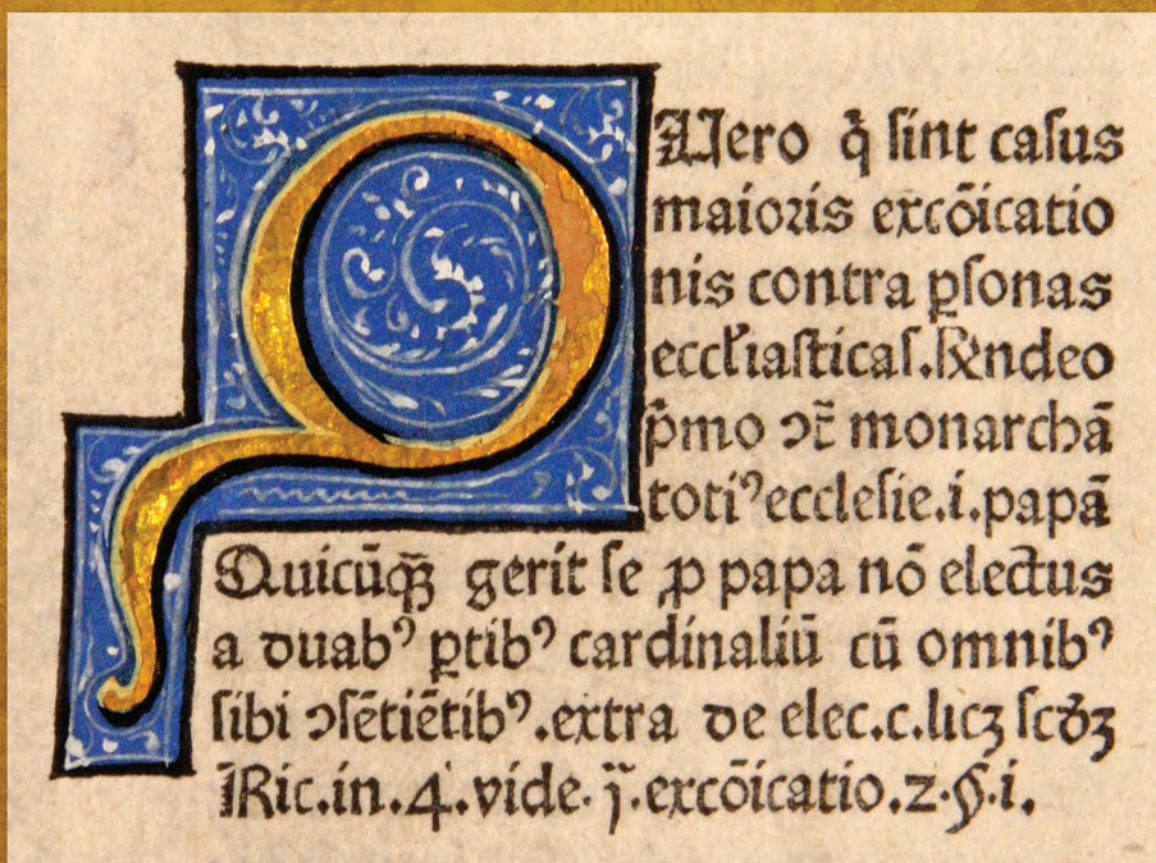 QUero q̃ ſint caſus
maioris excōicatio
nis contra ꝑſonas
eccłiaſticaſ. Rñdeo
p̾mo ɔt̃ monarchā
totiꝰ eccleſie.i.papā
Quicūqꝫ gerit ſe ꝓ papa nō electus
a duabꝰ ꝑtibꝰ cardinaliū cū omnibꝰ
ſibi ɔſētiētibꝰ.extra de elec.c.licꝫ ſcd̾ꝫ
Ric.in.4.vide.j̃.excōicatio.2.§.i.